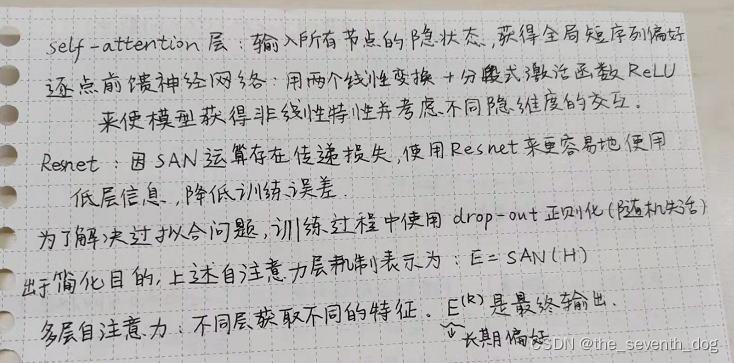 self-attention 层：输入所有节点的隐状态,获得全局短序列偏好
逐点前馈神经网络：用两个线性变换 + 分段式激活函数 ReLU
来使模型获得非线性特性并考虑不同隐维度的交互.
Resnet：因 SAN 运算存在传递损失,使用 Resnet 来更容易地使用
低层信息,降低训练误差.
为了解决过拟合问题,训练过程中使用 drop-out 正则化(随机失活)
出于简化目的,上述自注意力层机制表示为：E = SAN(H)
多层自注意力：不同层获取不同的特征. E^(k) 是最终输出.
长期偏好
CSDN @the_seventh_dog